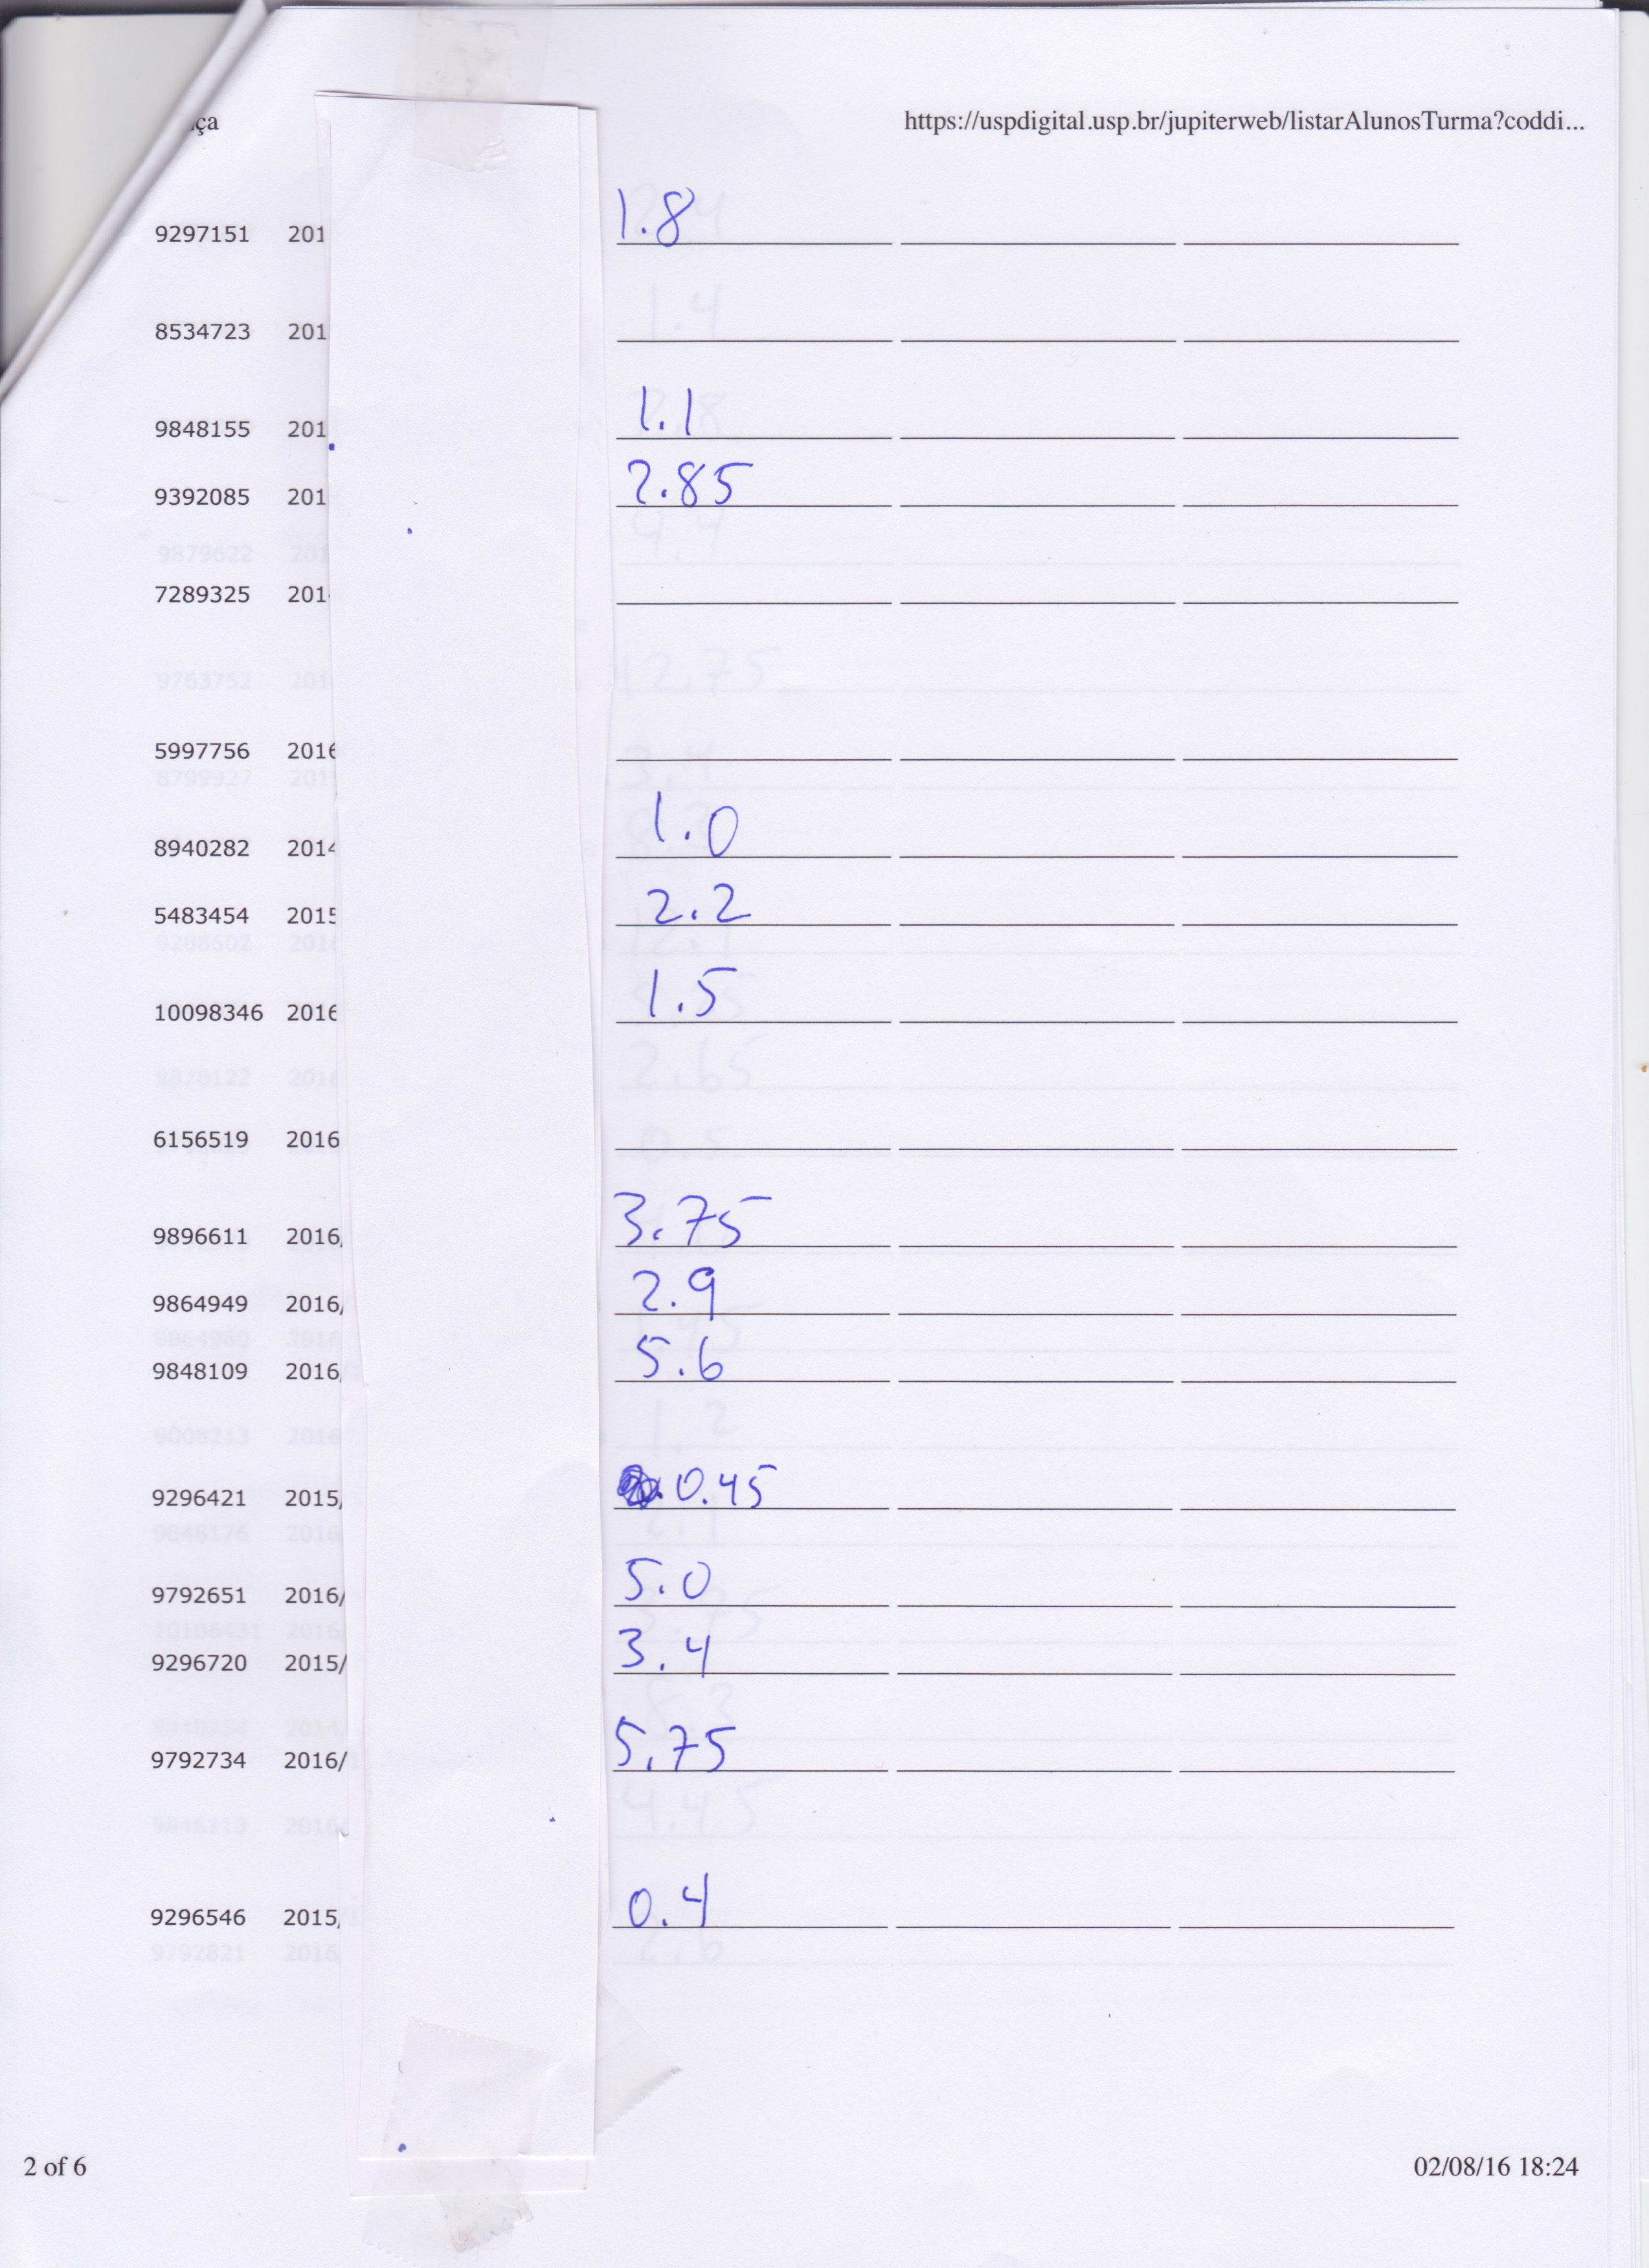 ça https://uspdigital.usp.br/jupiterweb/listarAlunosTurma?coddi...
9297151 201 1.8
8534723 201
9848155 201 1.1
9392085 201 2.85
7289325 201
5997756 2016
8940282 2014 1.0
5483454 2015 2.2
10098346 2016 1.5
6156519 2016
9896611 2016/ 3.75
9864949 2016/ 2.9
9848109 2016/ 5.6
9296421 2015/ 0.45
9792651 2016/ 5.0
9296720 2015/ 3.4
9792734 2016/ 5.75
9296546 2015/ 0.4
2 of 6 02/08/16 18:24